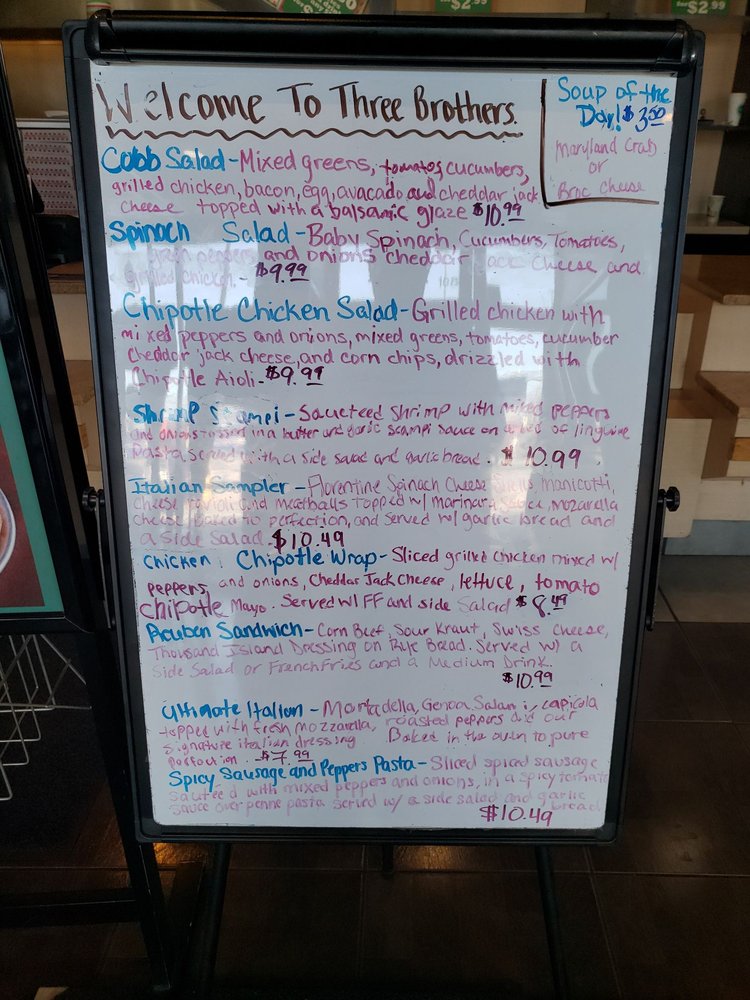 $2.99
$2.99
Welcome To Three Brothers.
Soup of the
Day! $3.50
Maryland Crab
or
Broc Cheese
Cobb Salad - Mixed greens, tomatos, cucumbers,
grilled chicken, bacon, egg, avacado and cheddar jack
cheese topped with a balsamic glaze $10.99
Spinach Salad - Baby Spinach, Cucumbers, Tomatoes,
green peppers and onions cheddar jack cheese and
grilled chicken. - $9.99
Chipotle Chicken Salad - Grilled chicken with
mixed peppers and onions, mixed greens, tomatoes, cucumber
cheddar jack cheese, and corn chips, drizzled with
Chipotle Aioli. $9.99
Shrimp Scampi - Sauceteed Shrimp with mixed peppers
and onions tossed in a butter and garlic scampi sauce on a bed of linguine
pasta served with a side salad and garlic bread. $10.99
Italian Sampler - Florentine Spinach Cheese Shells, manicotti,
cheese ravioli and meatballs topped w/ marinara sauce, mozarella
cheese baked to perfection, and served w/ garlic bread and
a side salad. $10.49
Chicken Chipotle Wrap - Sliced grilled chicken mixed w/
peppers, and onions, Cheddar Jack Cheese, lettuce, tomato
Chipotle Mayo. Served w/ FF and side Salad $8.49
Reuben Sandwich - Corn Beef, Sour Kraut, Swiss Cheese,
Thousand Island Dressing on Rye Bread. Served w/ a
Side Salad or French Fries and a Medium Drink.
$10.99
Ultimate Italian - Mortadella, Genoa Salami, capicola
topped with fresh mozzarella, roasted peppers and our
signature italian dressing Baked in the oven to pure
perfection. $7.99
Spicy Sausage and Peppers Pasta - Sliced spiced sausage
sauteé'd with mixed peppers and onions, in a spicy tomato
sauce over penne pasta served w/ a side salad and garlic
bread
$10.49